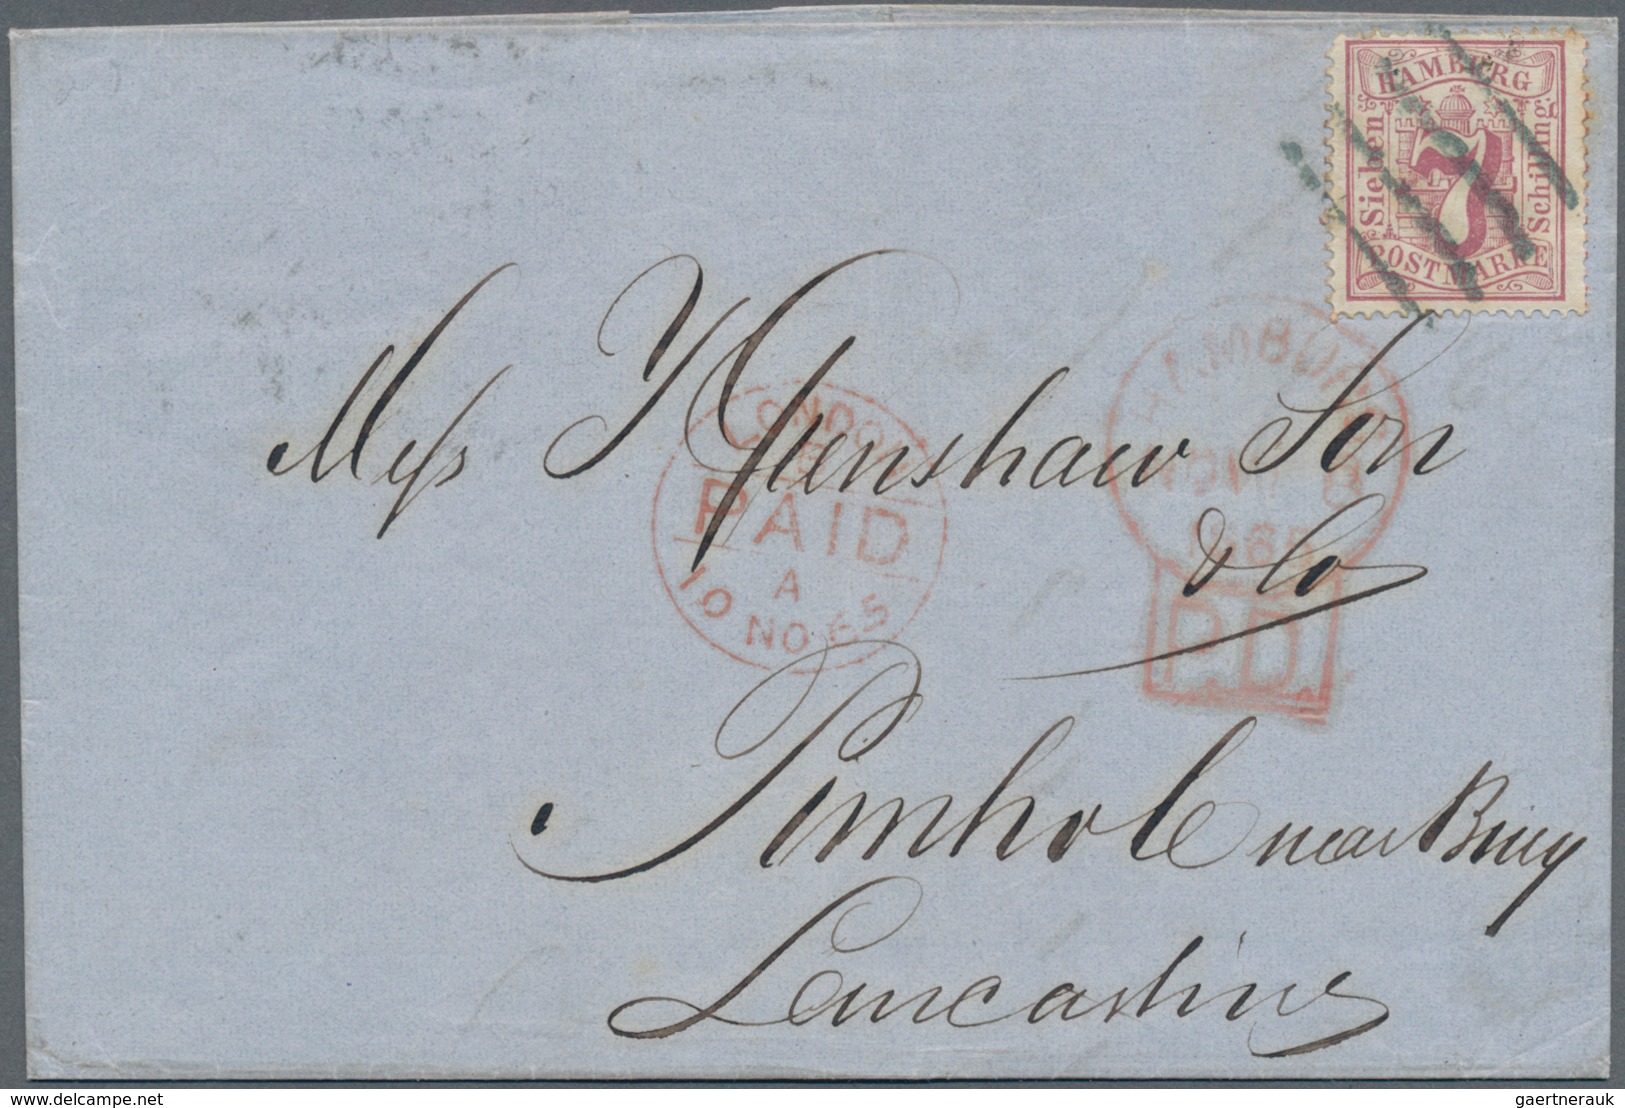 HAMBURG
Sieben
7
Schilling
POSTMARKE
HAMBURG
NOV 8
1865
PD
LONDON
PAID
A
10 NO 65
Mess Openshaw Son
& Co
Pimhole near Bury
Lancashire
delcampe.net
gaertnerauk